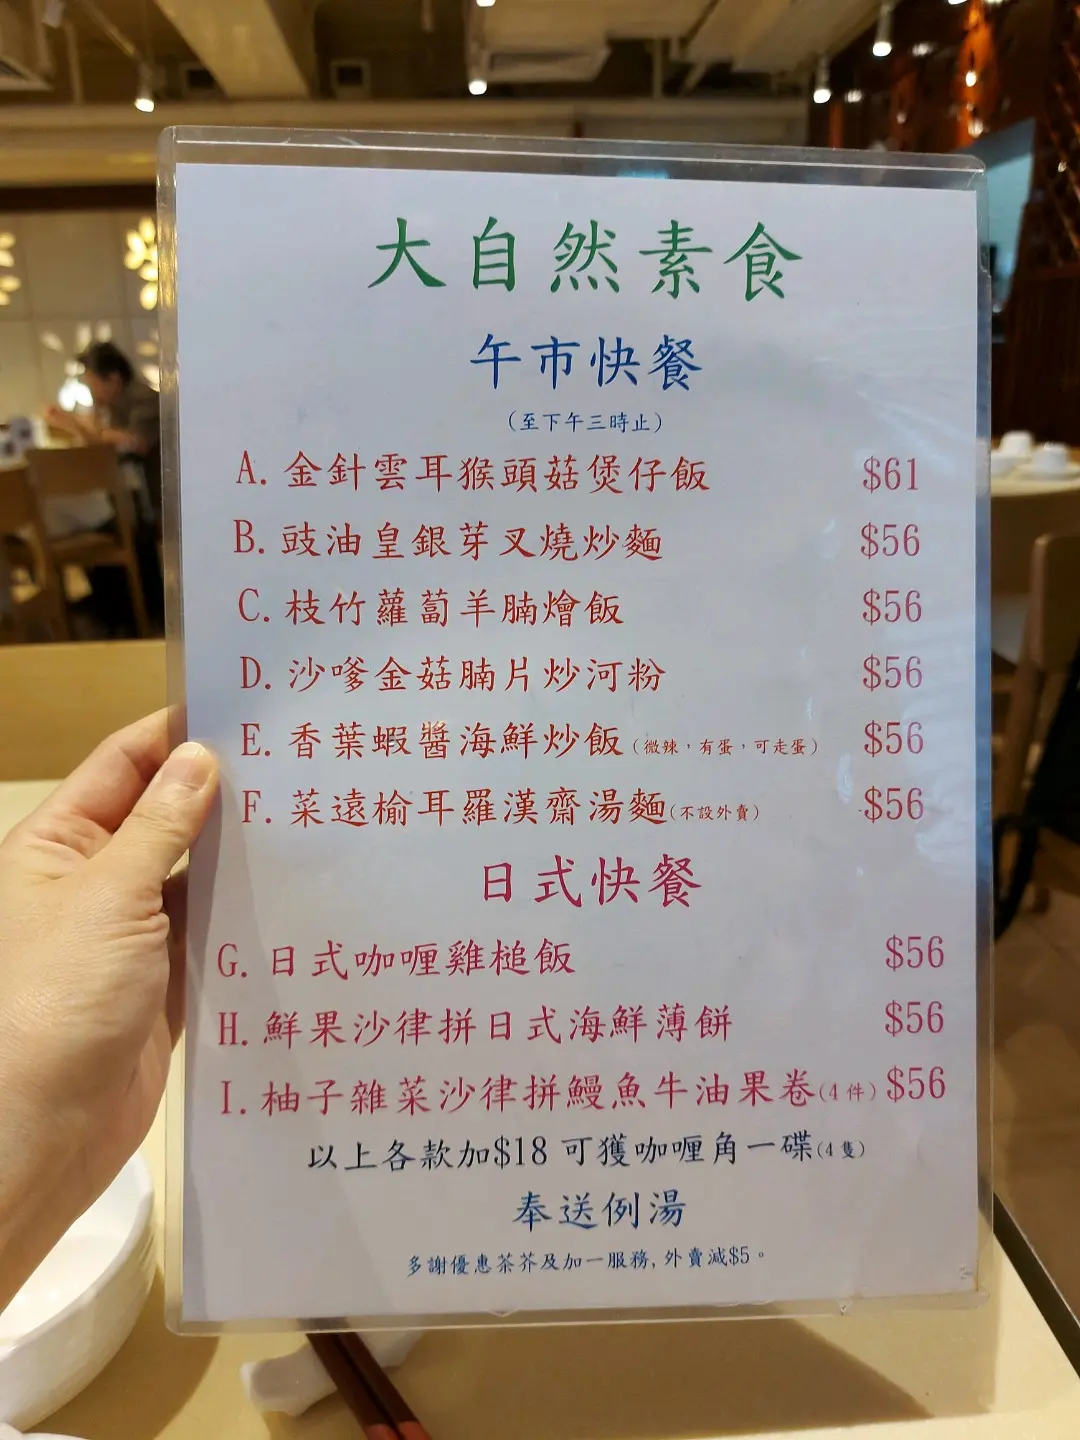 大自然素食
午市快餐
(至下午三時止)
A. 金針雲耳猴頭菇煲仔飯 $61
B. 豉油皇銀芽叉燒炒麵 $56
C. 枝竹蘿蔔羊腩燴飯 $56
D. 沙嗲金菇腩片炒河粉 $56
E. 香葉蝦醬海鮮炒飯(微辣，有蛋，可走蛋) $56
F. 菜遠榆耳羅漢齋湯麵(不設外賣) $56
日式快餐
G. 日式咖喱雞槌飯 $56
H. 鮮果沙律拼日式海鮮薄餅 $56
I. 柚子雜菜沙律拼鰻魚牛油果卷(4件) $56
以上各款加$18 可獲咖喱角一碟(4隻)
奉送例湯
多謝優惠茶芥及加一服務, 外賣減$5。